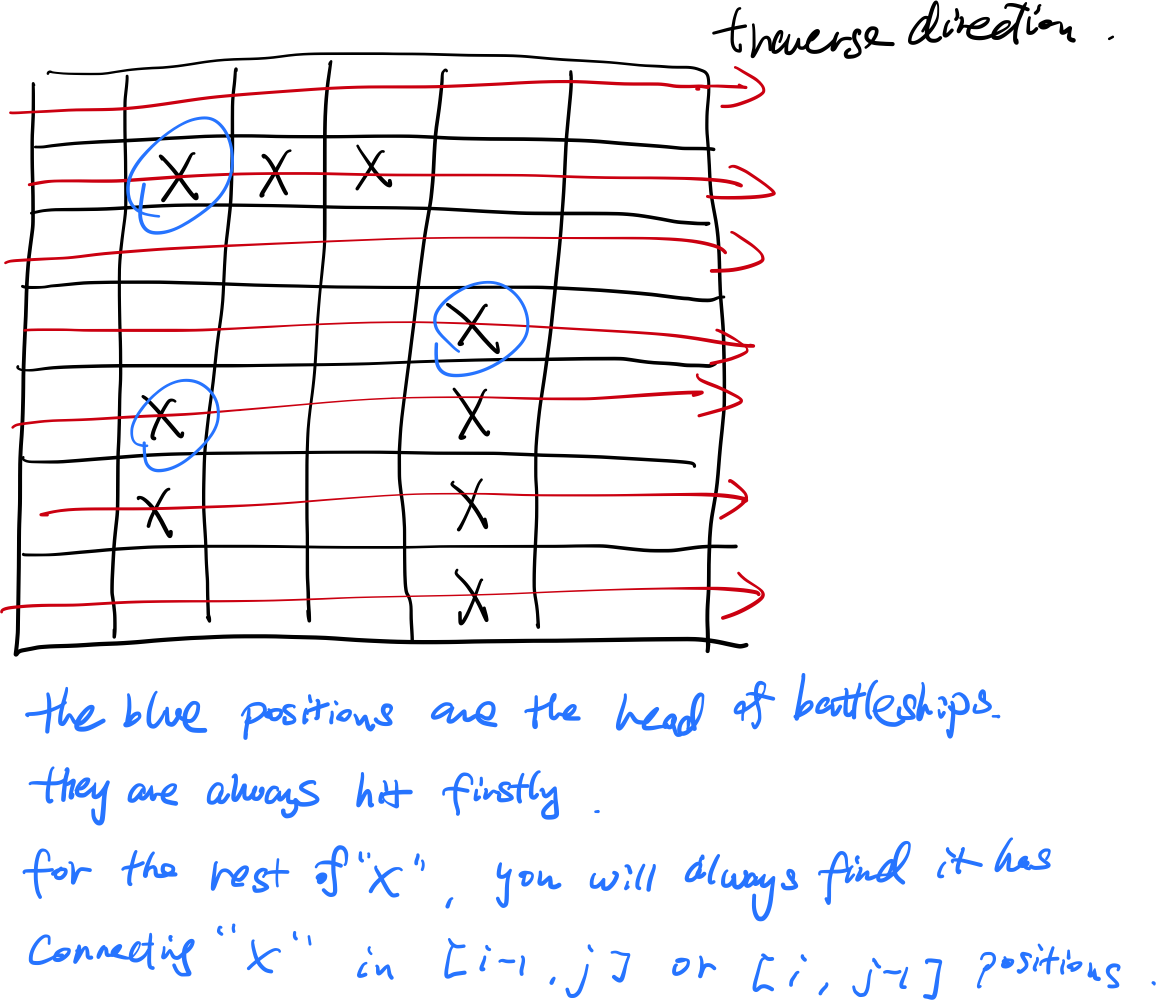 traverse direction .
X X X
X
X X
X X
X
the blue positions are the head of battleships.
they are always hit firstly .
for the rest of "X", you will always find it has
Connecting "X" in [i-1, j] or [i, j-1] positions .